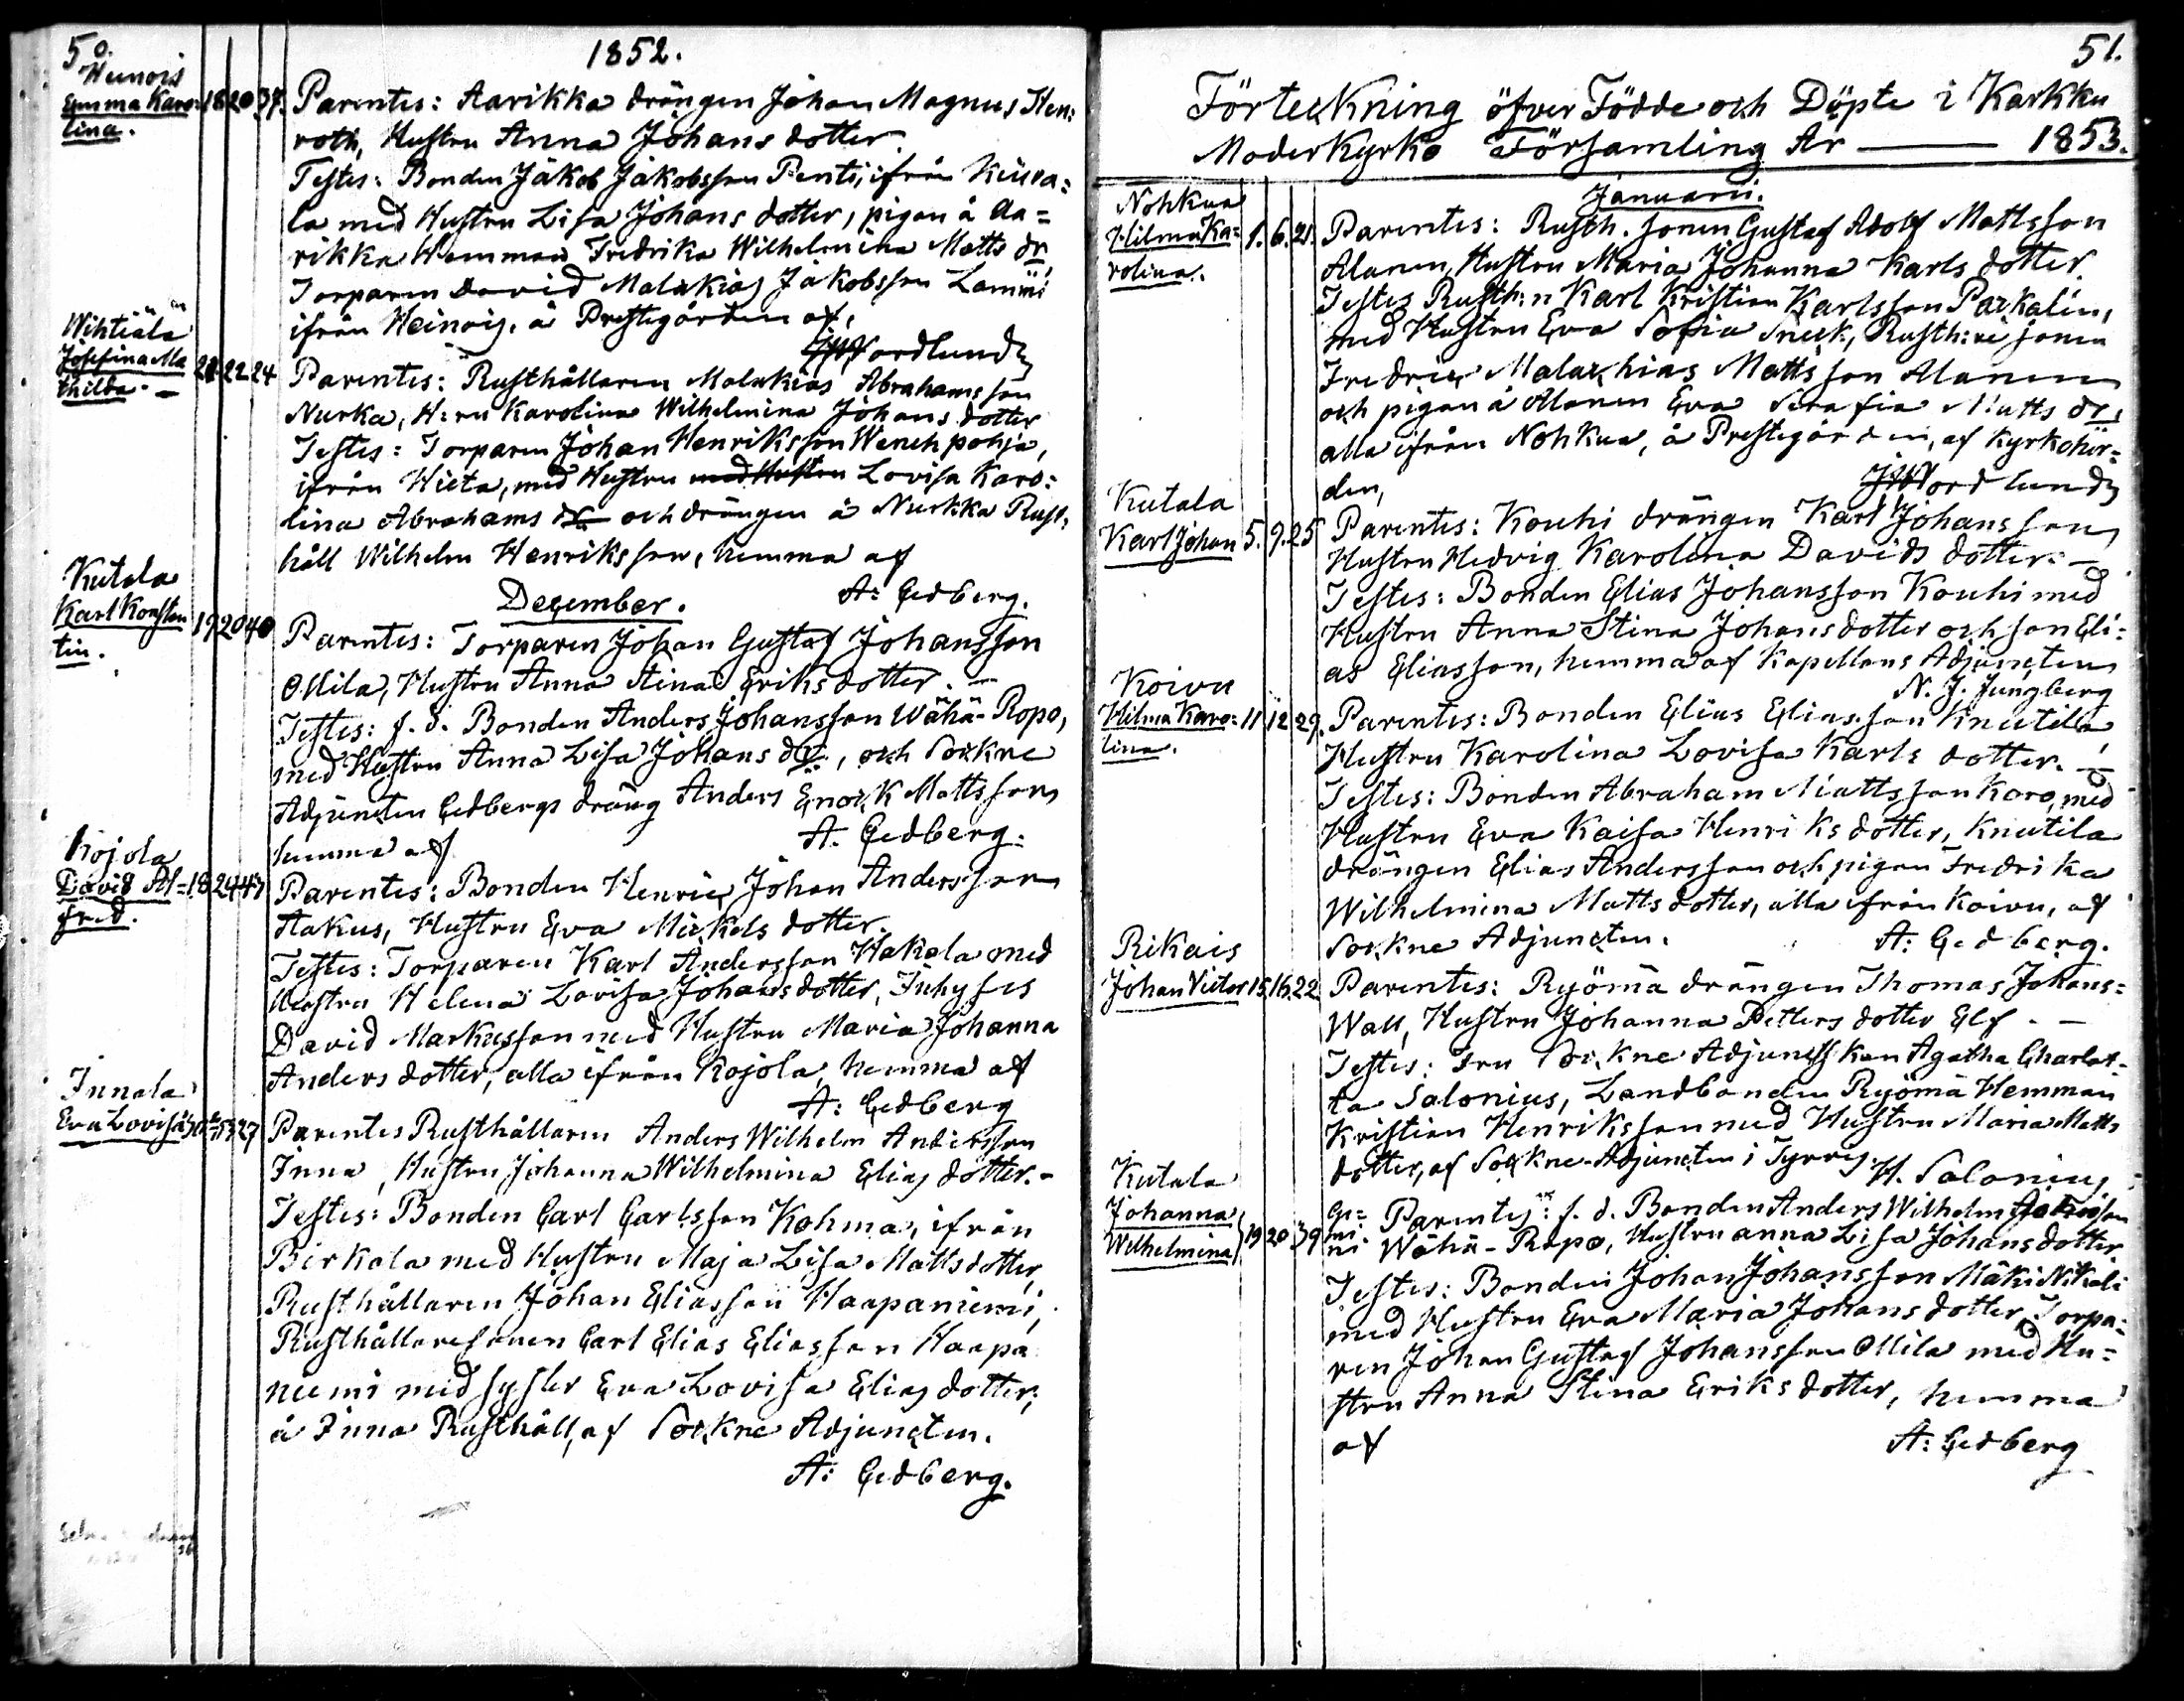 50.
1852.
Heinois
Emma Karo= 18 20 37. Parentes: Aarikka drängen Johan Magnus Hen:
lina. roth, Hustru Anna Johans dotter.
Testes: Bonden Jakob Jakobsson Penti, ifrån Kiura=
la med Hustru Lisa Johans dotter, pigan å Aa=
rikka Hemman Fredrika Wilhelmina Matts dr,
Torparen David Malakias Jakobsson Lammi
ifrån Heinois, å Prestegården af,
Nordlund
Wihtiälä
Josefina Ma 22 24 Parentes: Rusthållaren Malakias Abrahamsson
thilda.- Nurka, H:ru Karolina Wilhelmina Johans dotter
Testes: Torparen Johan Henriksson Wenehpohja,
ifrån Hieta, med Hustru med Hustru Lovisa Karo:
lina Abrahams dr och drängen å Nurkka Rust,
håll Wilhelm Henriksson, hemma af
A: Cedberg.
December.
Kutala
Karl Konstan 19 20 40 Parentes: Torparen Johan Gustaf Johansson
tin. Ollila, Hustru Anna Stina Eriks dotter.-
Testes: f. d. Bonden Anders Johansson Wähä-Ropo,
med Hustru Anna Lisa Johans dr:, och Sockne
Adjuncten Cedbergs dräng Anders Enock Mattsson
hemma af A. Cedberg.
Kojola
David Al= 18 24 47 Parentes: Bonden Henric Johan Andersson
fred. Stakus, Hustru Eva Mickels dotter.
Testes: Torparen Karl Andersson Hakala med
Hustru Helena Lovisa Johans dotter, Inhyses
David Markusson med Hustru Maria Johanna
Anders dotter, alla ifrån Kojola, hemma af
A: Cedberg
Innala
Eva Lovisa 27 Parentes Rusthållaren Anders Wilhelm Andersson
Inna, Hustru Johanna Wilhelmina Elias dotter.-
Testes: Bonden Carl Carlsson Kohma, ifrån
Birkala med Hustru Maja Lisa Matts dotter,
Rusthållaren Johan Eliasson Haapaniemi,
Rusthållaresonen Carl Elias Eliasson Haapa
niemi med syster Eva Lovisa Elias dotter,
å Inna Rusthåll, af Sockne Adjuncten.
A: Cedberg.
51.
Förteckning öfver Födde och Döpte i Karkku
Moderkyrko Församling År — 1853.
Januarii.
Nohkua
Hilma Ka= 1. 6. 21. Parentes: Rusth. sonen Gustaf Adolf Mattsson
rolina. Alanen, Hustru Maria Johanna Karls dotter.
Testes Rusth:n Karl Kristian Karlsson Parkalin,
med Hustru Eva Sofia Sneck, Rusth:re sonen
Fredric Malachias Mattsson Alanen
och pigan å Alanen Eva Serafia Matts dr,
alla ifrån Nohkua, å Prestegården, af Kyrkoher=
den, Nordlund
Kutala
Karl Johan 5. 9. 25 Parentes: Kouhi drängen Karl Johansson,
Hustru Hedvig Karolina Davids dotter.-
Testes: Bonden Elias Johansson Kouhi med
Hustru Anna Stina Johans dotter och son Eli=
as Eliasson, hemma af Kapellans Adjuncten
N. J. Jungberg
Koivu
Hilma Karo= 11 12 29. Parentes: Bonden Elias Eliasson Knutila
lina. Hustru Karolina Lovisa Karls dotter.-
Testes: Bonden Abraham Mattsson Karo, med
Hustru Eva Kaisa Henriks dotter, Knutila
drängen Elias Andersson och pigan Fredrika
Wilhelmina Matts dotter, alla ifrån Koivu, af
Sockne Adjuncten. A: Cedberg.
Rikais
Johan Victor 15 16 22 Parentes: Ryömä drängen Thomas Johans=
Wall, Hustru Johanna Petters dotter Elf.-
Testes: Fru Sockne Adjunctskan Agatha Charlot-
ta Salonius, Landbonden Ryömä Hemman
Kristian Henriksson med Hustru Maria Matts
dotter, af Sockne-Adjuncten i Tyrvis. H. Salonius
Kutala
Johanna, Ge= Parentes: f. d. Bonden Anders Wilhelm
Wilhelmina 19 20 39 mi ni Wähä-Ropo, Hustru Anna Lisa Johans dotter
Testes: Bonden Johan Johansson Mäki Nikali
med Hustru Eva Maria Johans dotter, Torpa=
ren Johan Gustaf Johansson Ollila med Hu=
stru Anna Stina Eriks dotter, hemma
af A: Cedberg